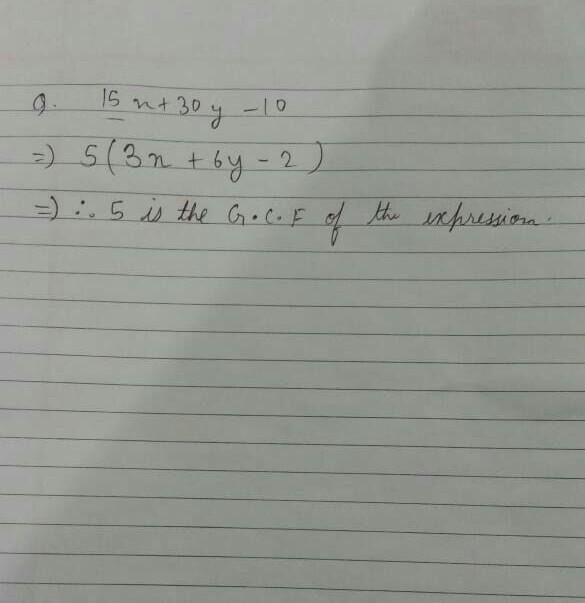 Q. 15x + 30y - 10
=) 5(3x + 6y - 2)
=) ∴ 5 is the G.C.F of the expression.